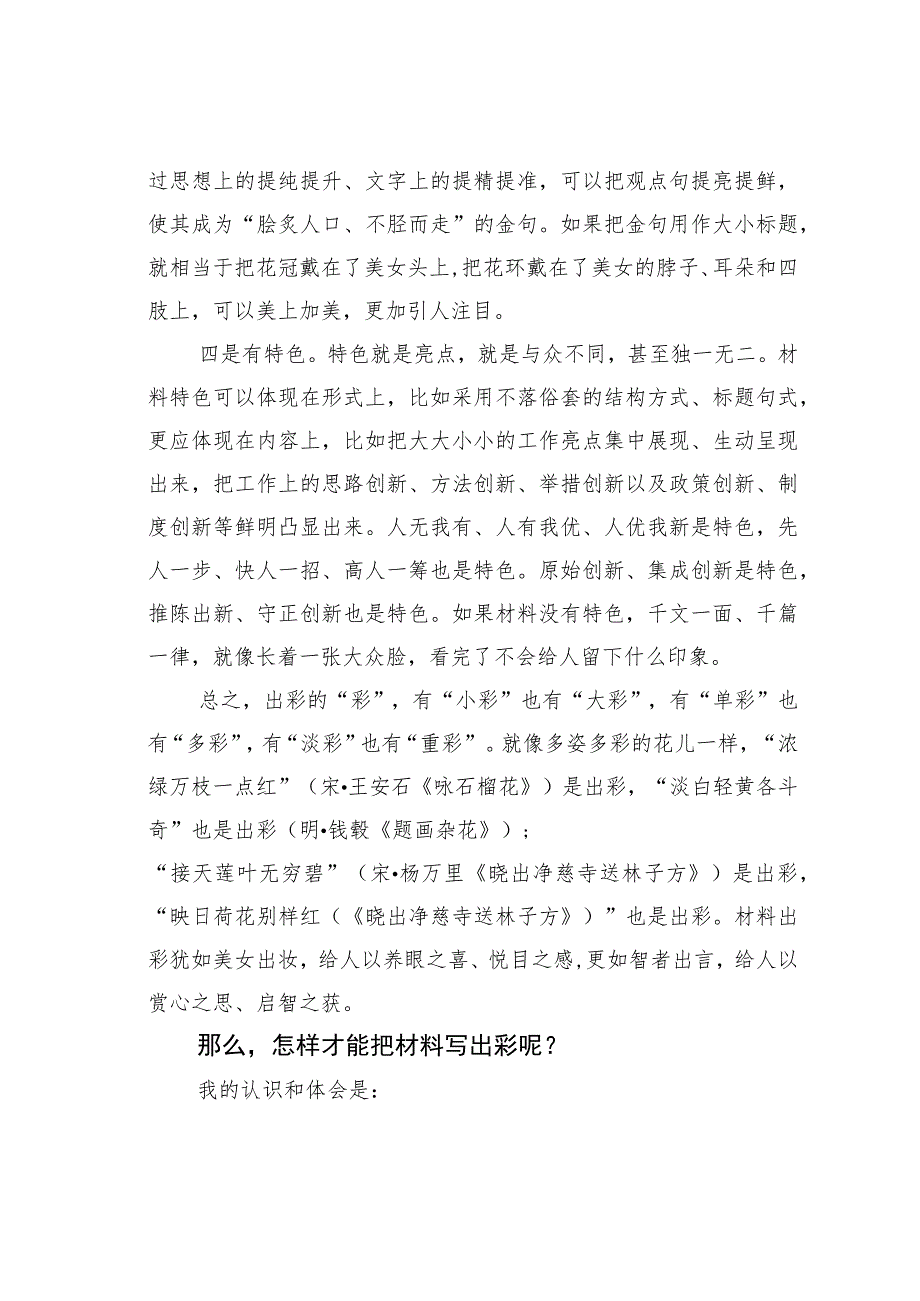 过思想上的提纯提升、文字上的提精提准，可以把观点句提亮提鲜，
使其成为“脍炙人口、不胫而走”的金句。如果把金句用作大小标题，
就相当于把花冠戴在了美女头上,把花环戴在了美女的脖子、耳朵和四
肢上，可以美上加美，更加引人注目。
四是有特色。特色就是亮点，就是与众不同，甚至独一无二。材
料特色可以体现在形式上，比如采用不落俗套的结构方式、标题句式，
更应体现在内容上，比如把大大小小的工作亮点集中展现、生动呈现
出来，把工作上的思路创新、方法创新、举措创新以及政策创新、制
度创新等鲜明凸显出来。人无我有、人有我优、人优我新是特色，先
人一步、快人一招、高人一筹也是特色。原始创新、集成创新是特色，
推陈出新、守正创新也是特色。如果材料没有特色，千文一面、千篇
一律，就像长着一张大众脸，看完了不会给人留下什么印象。
总之，出彩的“彩”，有“小彩”也有“大彩”，有“单彩”也
有“多彩”，有“淡彩”也有“重彩”。就像多姿多彩的花儿一样，“浓
绿万枝一点红”（宋•王安石《咏石榴花》）是出彩，“淡白轻黄各斗
奇”也是出彩（明•钱毂《题画杂花》）;
“接天莲叶无穷碧”（宋•杨万里《晓出净慈寺送林子方》）是出彩，
“映日荷花别样红（《晓出净慈寺送林子方》）”也是出彩。材料出
彩犹如美女出妆，给人以养眼之喜、悦目之感,更如智者出言，给人以
赏心之思、启智之获。
那么，怎样才能把材料写出彩呢？
我的认识和体会是：